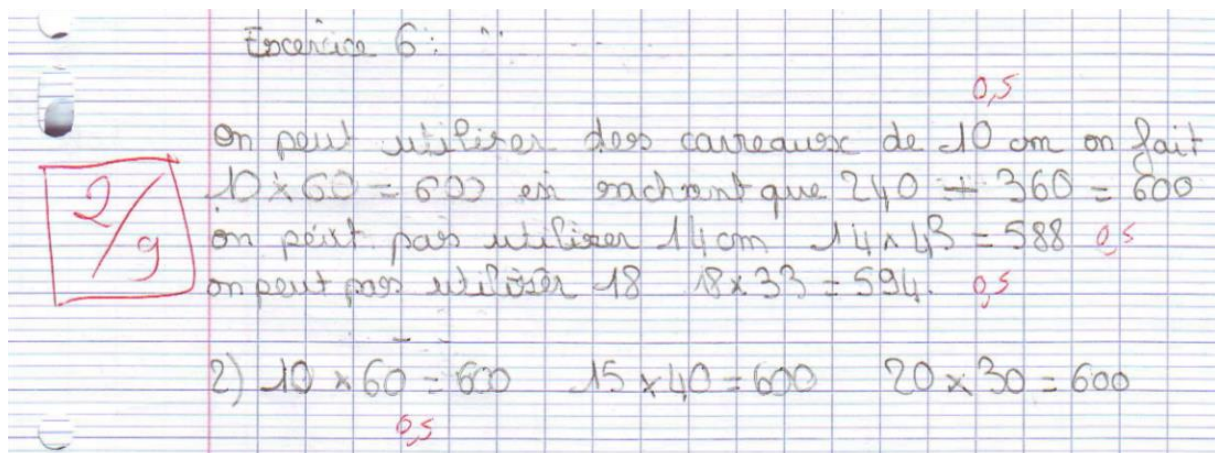 Excercice 6:
0,5
on peut utiliser des carreaux de 10 cm on fait
10 x 60 = 600 en sachant que 240 + 360 = 600
2/9
on peut pas utiliser 14 cm 14 x 43 = 588 0,5
on peut pas utiliser 18 18 x 33 = 594. 0,5
2) 10 x 60 = 600 15 x 40 = 600 20 x 30 = 600
0,5